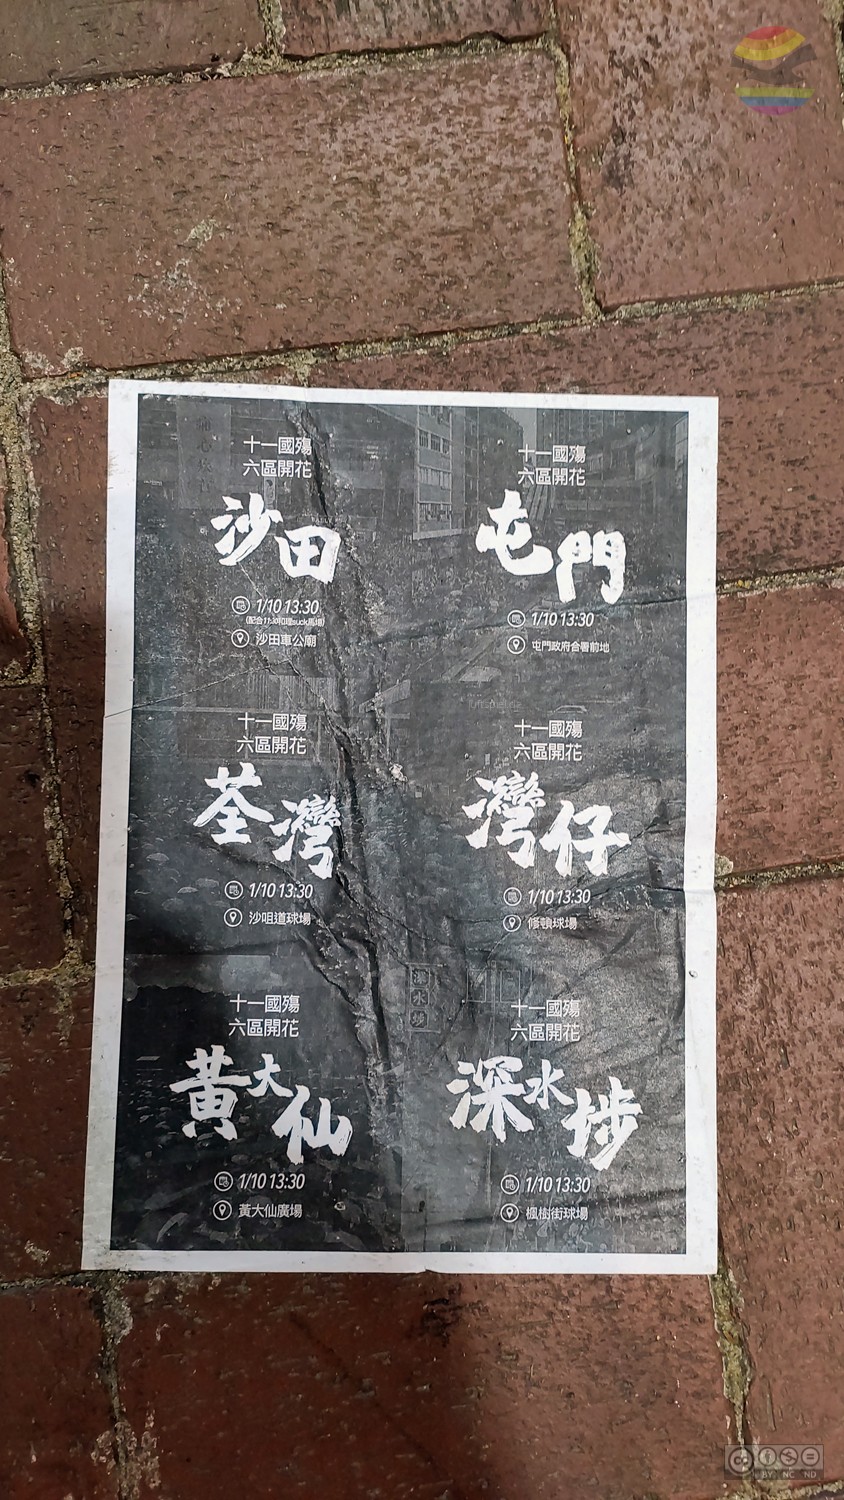 十一國殤
六區開花
沙田
1/10 13:30
(配合11:30和理suck馬場)
沙田車公廟
十一國殤
六區開花
屯門
1/10 13:30
屯門政府合署前地
十一國殤
六區開花
荃灣
1/10 13:30
沙咀道球場
十一國殤
六區開花
灣仔
1/10 13:30
修頓球場
十一國殤
六區開花
黃大仙
1/10 13:30
黃大仙廣場
十一國殤
六區開花
深水埗
1/10 13:30
楓樹街球場
深水埗
cc
BY NC ND